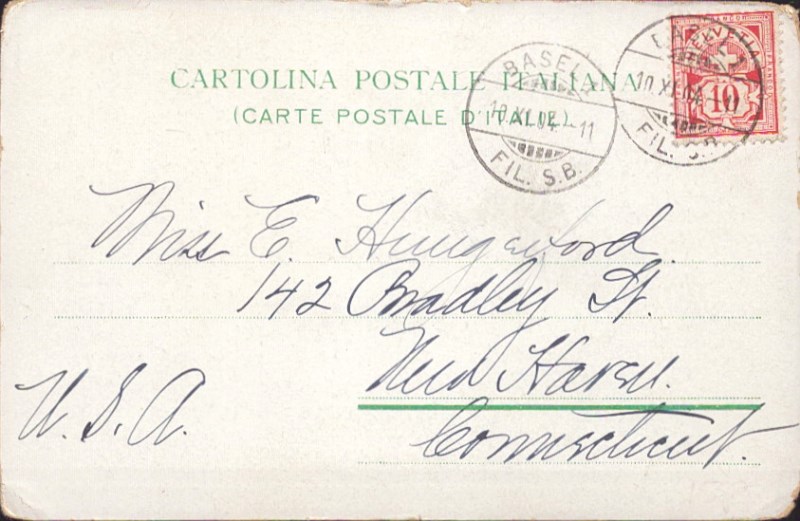 CARTOLINA POSTALE ITALIANA
(CARTE POSTALE D'ITALIE)
BASEL
10.XI.04.-11
FIL. S.B.
BASEL
10.XI.04.-11
FIL. S.B.
FRANCO
HELVETIA
10
Miss E. Hungerford.
142 Bradley St.
New Haven.
Connecticut.
U.S.A.